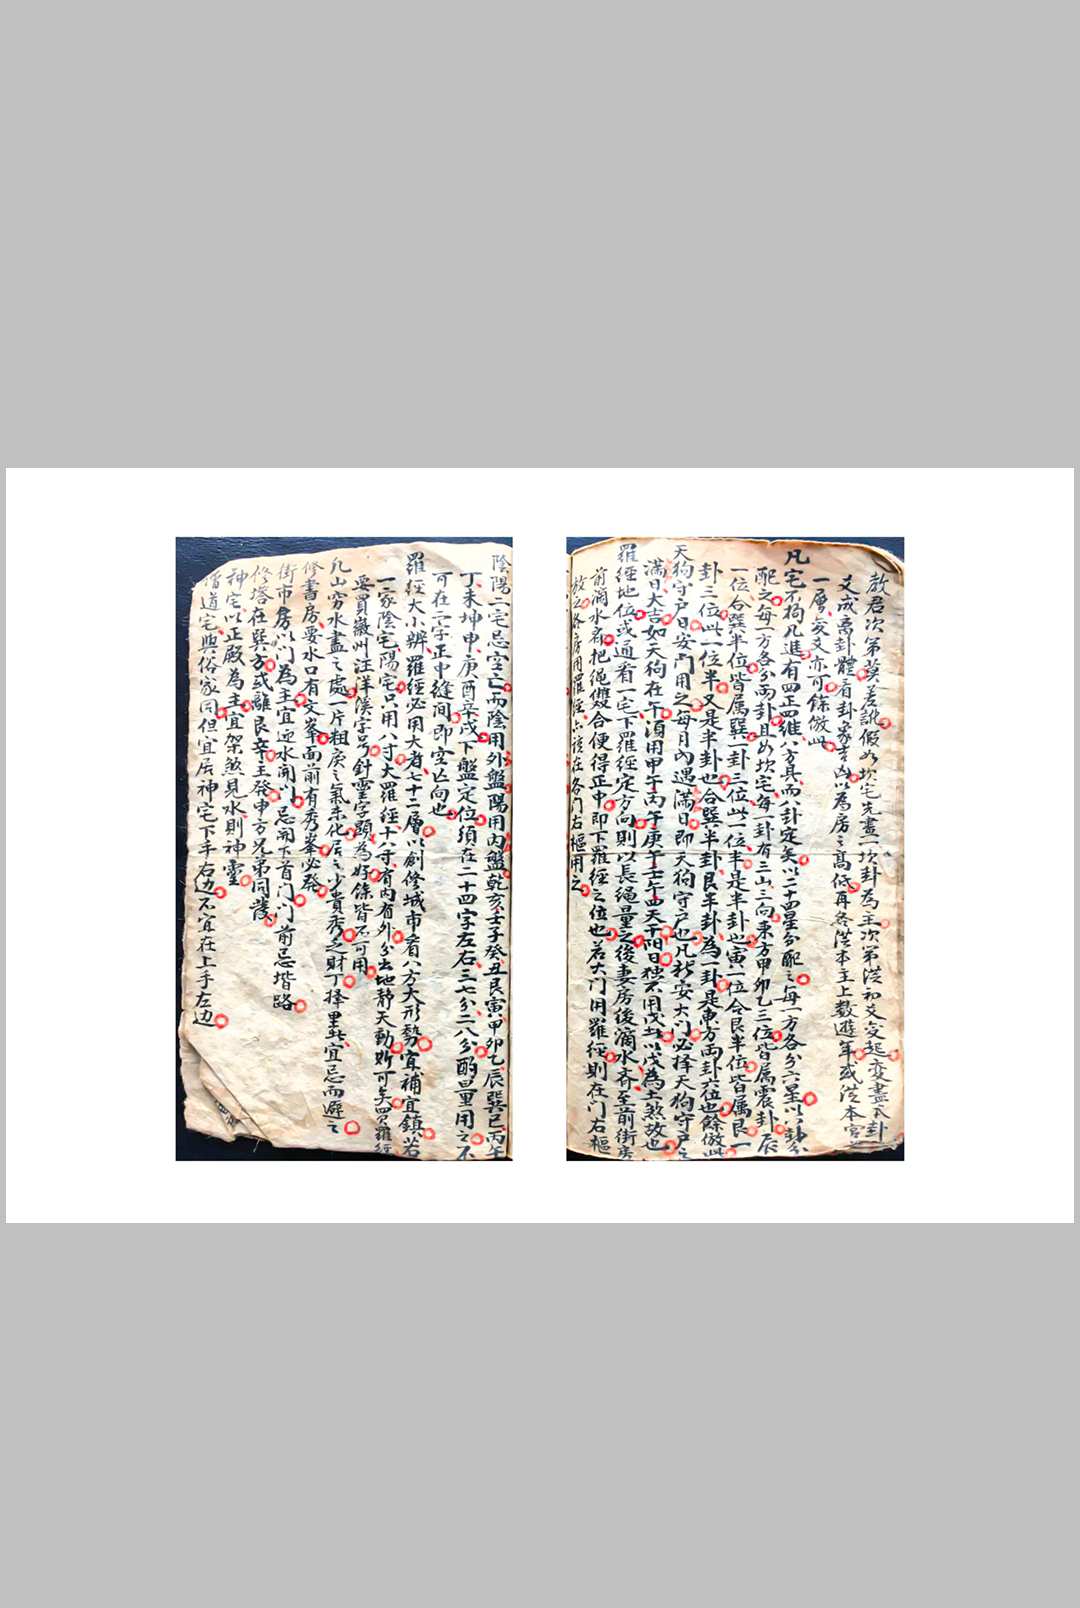 教君次第莫差訛假如坎宅先畫一坎卦為主次第從初爻变起变盡本卦
爻成离卦體看卦象吉凶以為房之髙低再各從本主上数遊年或從本宫
一層一爻亦可餘倣此
凡宅不拘凡進有四正四維八方具而八卦定矣以二十四星分配之每一方各分六星以卦分
配之每一方各分両卦且如坎宅每一卦有三山三向東方甲卯乙三位皆属震卦辰
一位合巽半位皆属巽一卦三位此一位半是半卦也寅一位合艮半位皆属艮一
卦三位此一位半又是半卦也合巽半卦艮半卦為一卦是東方両卦六位也餘倣此
天狗守户日安门用之每月内遇滿日即天狗守户也凡祈安大门必择天狗守户之
滿日大吉如天狗在午須用甲午丙午庚午壬午四天干阳日独不用戊土以戊為土煞故也
羅經地位或通看一宅下羅經定方向則以長绳量之後妻房後滴水齐至前街房
前滴水为把绳雙合便得正中即下羅經之位也若大门用羅經則在门右樞
故云各房用羅經亦该在各门右樞用之
陰陽二宅忌空亡而陰用外盤陽用内盤乾亥壬子癸丑艮寅甲卯乙辰巽巳丙午
丁未坤申庚酉辛戌下盤定位須在二十四字左右三七分二八分酌量用之不
可在二字正中縫间即空亡向也
羅經大小辨羅經必用大者七十二層以創修城市看八方大形勢宜補宜鎮若
一家陰宅陽宅只用八寸大羅經十六寸有内者外分出地静天動斯可矣買羅經
要買徽州汪洋溪字号針靈字顕為好餘皆不可用
凡山穷水盡之處一片粗戾之氣未化居之少貴秀乏財丁择里此宜忌而避之
修書房要水口有文峯面前有秀峯必發
街市房以门為主宜迎水開门忌開下首门门前忌堦路
修塔在巽方或離艮辛主發申方兄弟同發
神宅以正殿為主宜架煞見水則神靈
僧道宅與俗家同但宜居神宅下手右边不宜在上手左边